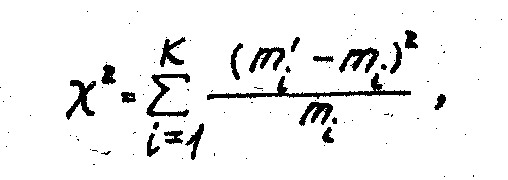 χ² = ∑_{i=1}^{K} (m'_i − m_i)² / m_i ,